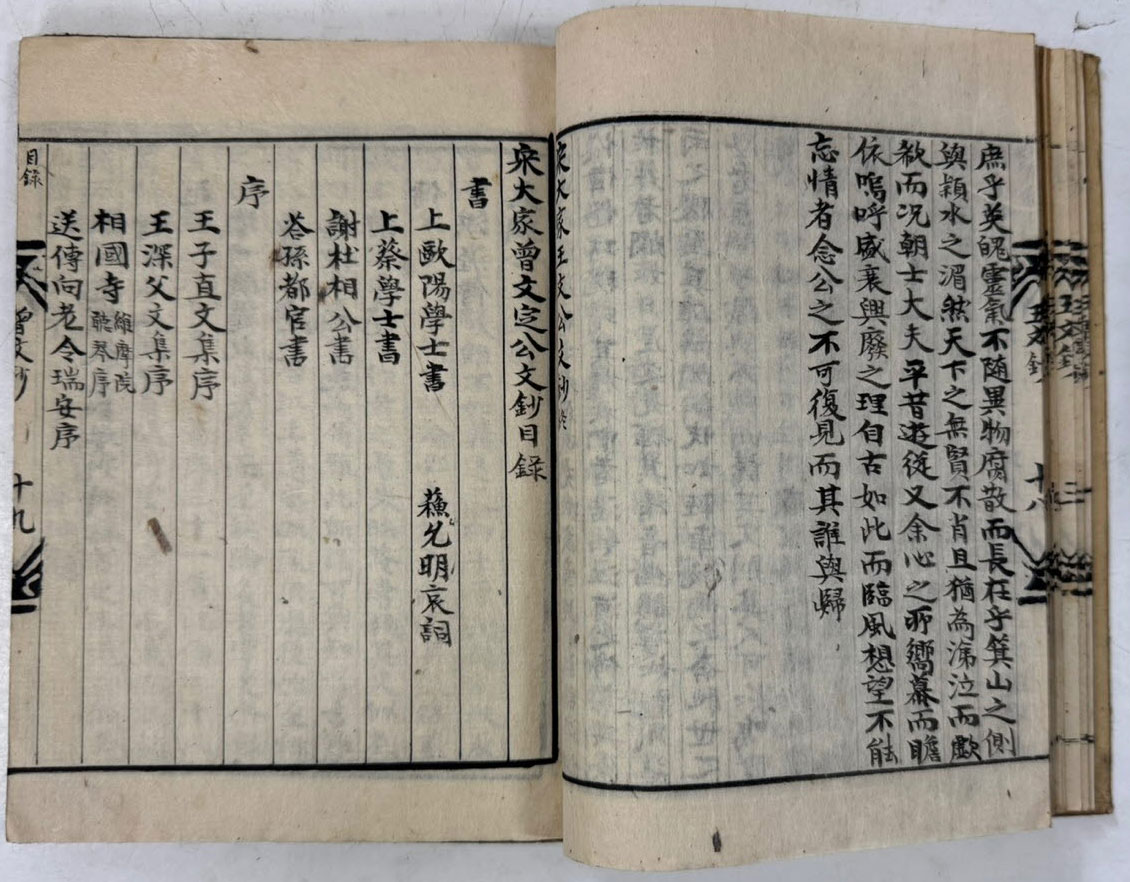 庶乎英魄靈氣不随異物腐散而長在乎箕山之側
與潁水之湄然天下之無賢不肖且猶為涕泣而歔
欷而况朝士大夫平昔遊從又余心之所嚮慕而瞻
依嗚呼盛衰興廢之理自古如此而臨風想望不能
忘情者念公之不可復見而其誰與歸
宋大家王文公文鈔終
王文鈔
十八
宋大家曾文定公文鈔目録
書
上歐陽學士書
蘓允明哀詞
上蔡學士書
謝杜相公書
答孫都官書
序
王子直文集序
王深父文集序
相國寺維摩院聽琴序
送傳向老令瑞安序
目録
曾文鈔
十九